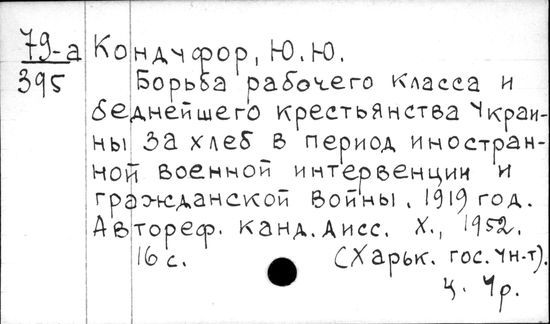 79-а Кондуфор, Ю.Ю.
395 Борьба рабочего класса и
беднейшего крестьянства Украи-
ны за хлеб в период иностран-
ной военной интервенции и
гражданской войны. 1919 год.
Автореф. канд. дисс. Х., 1952.
16 с. (Харьк. гос. ун-т).
ц. Ур.